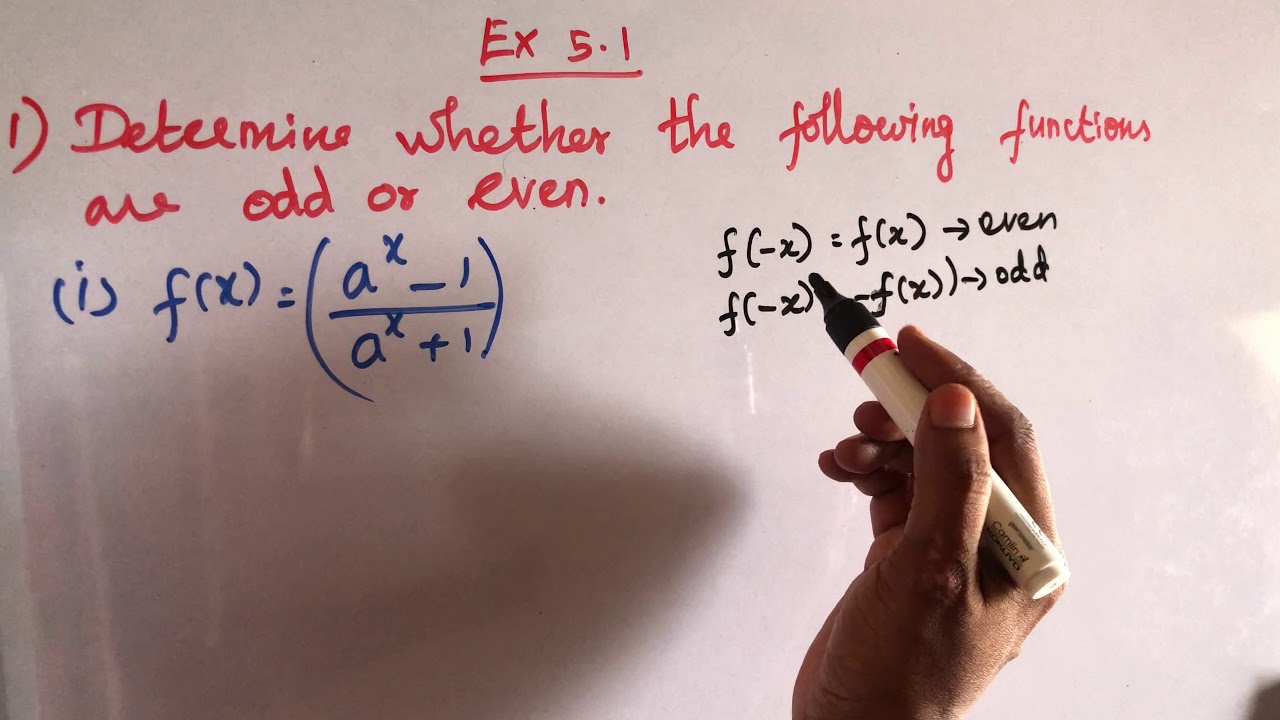 Ex 5.1
1) Determine whether the following functions
are odd or even.
(i) f(x) = (a^x - 1 / a^x + 1)
f(-x) = f(x) → even
f(-x) -f(x)) → odd
Camlin
KOKUYO